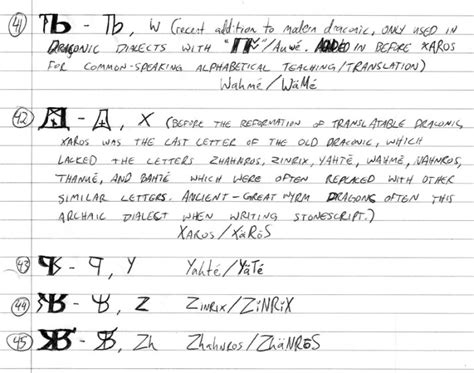 41 Ъ - Ъ, W (recent addition to modern draconic, ONLY USED IN
DRACONIC DIALECTS WITH "" / Auwé. ADDED IN BEFORE XAROS
FOR COMMON-SPEAKING ALPHABETICAL TEACHING/TRANSLATION)
Wahmé/WäMé
42 - , X (BEFORE THE REFORMATION OF TRANSLATABLE DRACONIC,
XAROS WAS THE LAST LETTER OF THE OLD DRACONIC, WHICH
LACKED THE LETTERS ZHAHNROS, ZINRIX, YAHTÉ, WAHMÉ, VAHNROS,
THANUÉ, AND WHICH WERE OFTEN REPLACED WITH OTHER
SIMILAR LETTERS. ANCIENT-GREAT WYRM DRAGONS OFTEN THIS
ARCHAIC DIALECT WHEN WRITING STONESCRIPT.)
XAROS/XäRöS
43 - , Y Yahté/YäTé
44 - , Z ZINRIX/ZiNRiX
45 - , Zh Zhahnros/ZhäNRöS